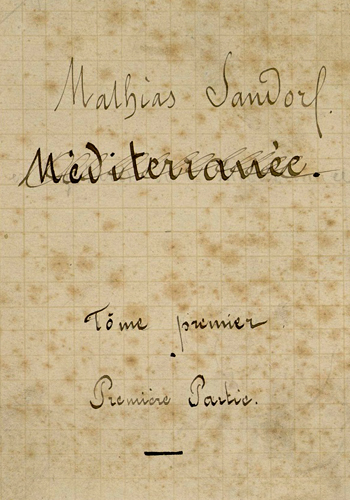 Mathias Sandorf.
Méditerranée.
Tôme premier
Première Partie.